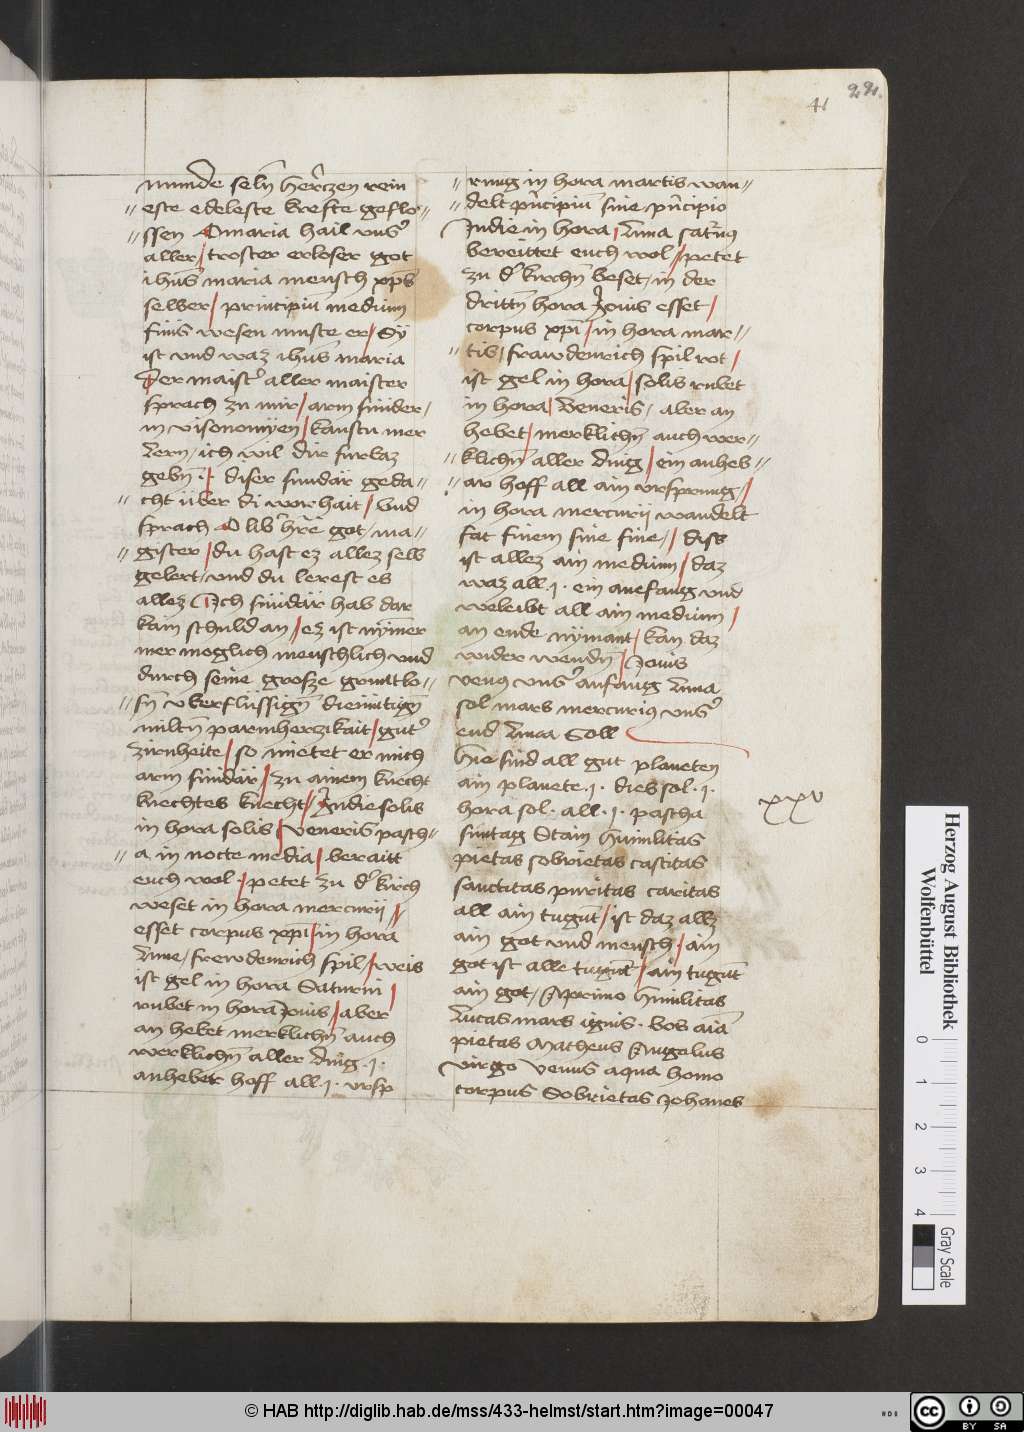 41 22.
munde seln̄ herczen rein
este edeleste brefte geflo-
ssen O maria hail vnsˀ
aller / troster erloser got
ihūs maria mensch xp̄s
selber / principiū medium
finis wesen muste er / Sy
ist vnd waz ihūs maria
Der maistˀ aller maister
sprach zu mir / arm sünder /
in visonomÿen / kanstu mer
Lern / ich wil dir furlaz
gebn̄ · / diser sundär geda-
cht über di worhait / Vnd
sprach O lib hr̄e got / ma-
gister / du hast ez allez selb
gelert / vnd du lerest es
allez Ich sündär hab dar
kain schuld an / ez ist nÿm̄er
mer moglich menschlich vnd
durch seine grosze gruntlo-
sn̄ vberflüssign̄ diemütign̄
miltn̄ parmherzikait / gutˀ
zirnheite / so mietet er mich
arm sündär / zu ainem knecht
knechtes knecht / In die solis
in hora solis / Veneris pasch-
a in nocte media / beraitt
euch wol · / petet zu dˀ kirch
weset in hora mercurij /
esset corpus xp̄i / in hora
Lune / frewdenrich spil / weis
ist gel in hora Saturni /
rubet in hora Iouis / aber
an hebet merklichn̄ auch
werklichn̄ aller ding · i ·
anheber hoff all · i · vrsp
rung in hora martis wan-
delt pn̄cipiū sine pn̄cipio
In die in hora / Luna satꝰnus
bereittet euch wol / petet
zu dˀ kirchn̄ beset / in der
drittn̄ hora Iouis esset /
corpus xp̄i / in hora mar-
tis / frawdenrich spil rot /
ist gel in hora / solis rubet
in hora / Veneris / aber an
hebet / merklichn̄ auch wer-
klichn̄ aller ding / ein anheb-
ar hoff all ain vrsprung /
in hora mercurij wandelt
fat finem sine fine / / diss
ist allez ain medium / daz
waz all · i · ein anefang vnd
weleibt all ain medium /
an ende nÿmant / kan daz
wider wendn̄ / Iouis
venꝰ vnsˀ anfang Luna
sol mars mercuriꝰ vnsˀ
end Luna Soll
Hie sind all gut planeten
ain planete · i · dies sol · i ·
hora sol · all · i · pascha
suntag Stain humilitas
pietas sobrietas castitas
sanctitas puritas caritas
all ain tugūt / ist daz allz
ain got vnd mensch / ain
got ist alle tugūt / ain tugūt
ain got / A primo humilitas
Lucas mars ignis · bos aīa
pietas Matheus Angelus
virgo Venus aqua homo
corpus Sobrietas Johanes
xxv
Herzog August Bibliothek
Wolfenbüttel
0 1 2 3 4
Gray Scale
© HAB http://diglib.hab.de/mss/433-helmst/start.htm?image=00047
HAB
cc BY SA